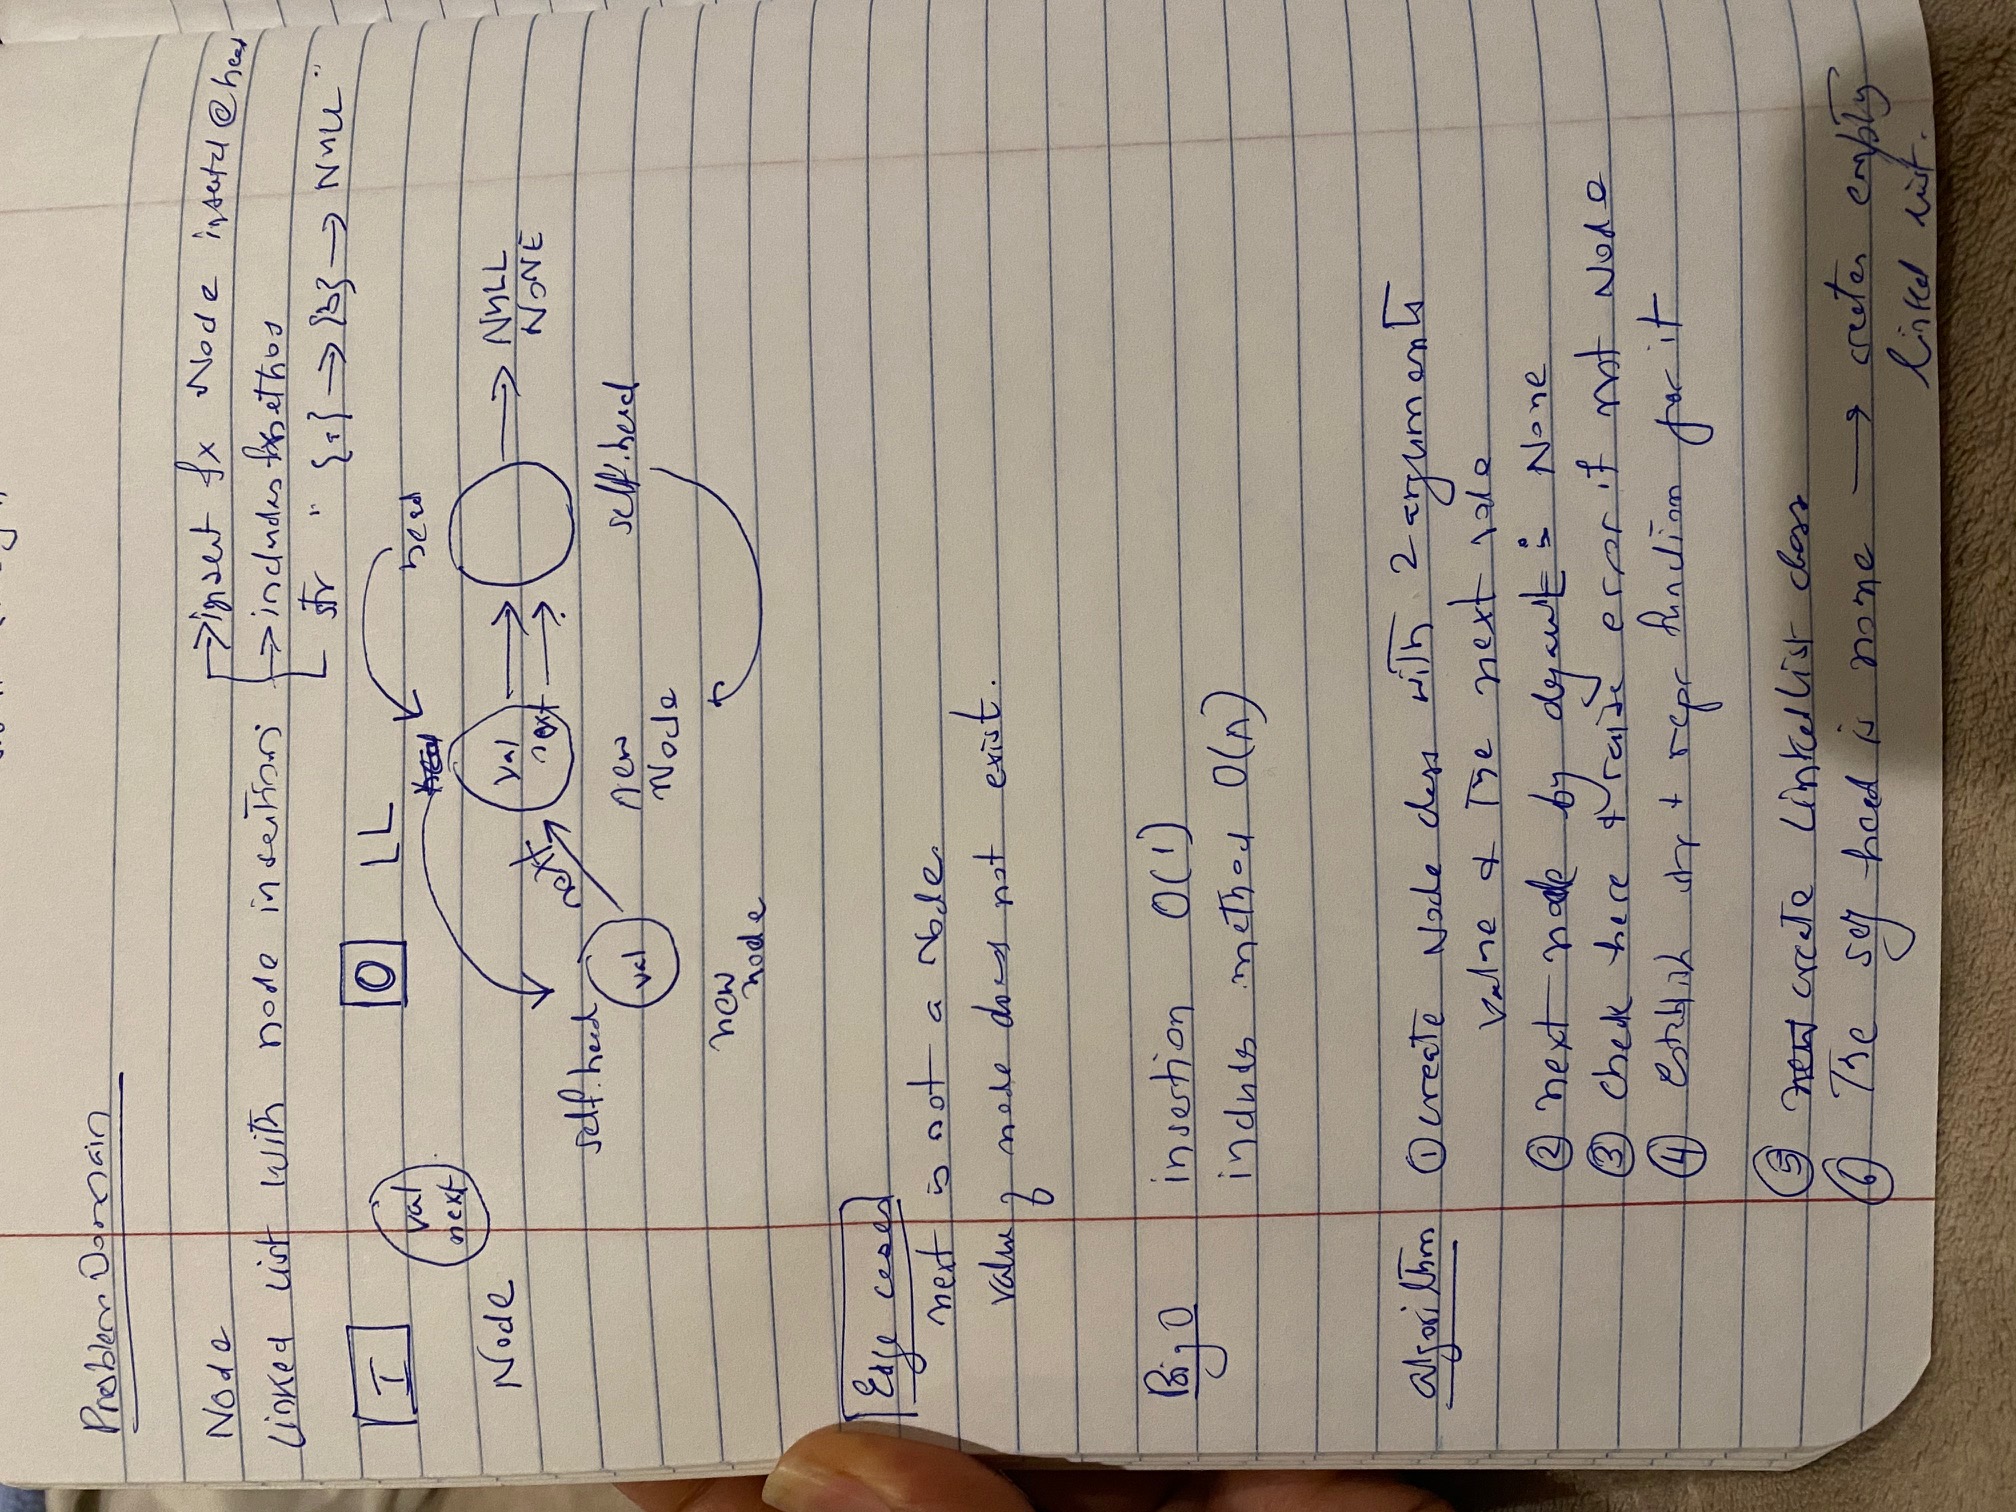 Problem Domain
Node
→ insert fx Node inserted @ head
Linked List with node insertions
→ includes methos
str " {a} → {b} → NULL "
I
O LL
val
next
Node
head
head
val
next
NULL
NONE
next
self.head
val
new
Node
self.head
new
node
Edge cases
next is not a Node
value of node does not exist.
Big O insertion O(1)
includes method O(n)
algorithm ① create Node class with 2 arguments
value & The next node
② next node by default is None
③ check here & raise error if not Node
④ Establish str + repr function for it
⑤ new create Linkedlist class
⑥ The self head is none → creates empty
linked list.